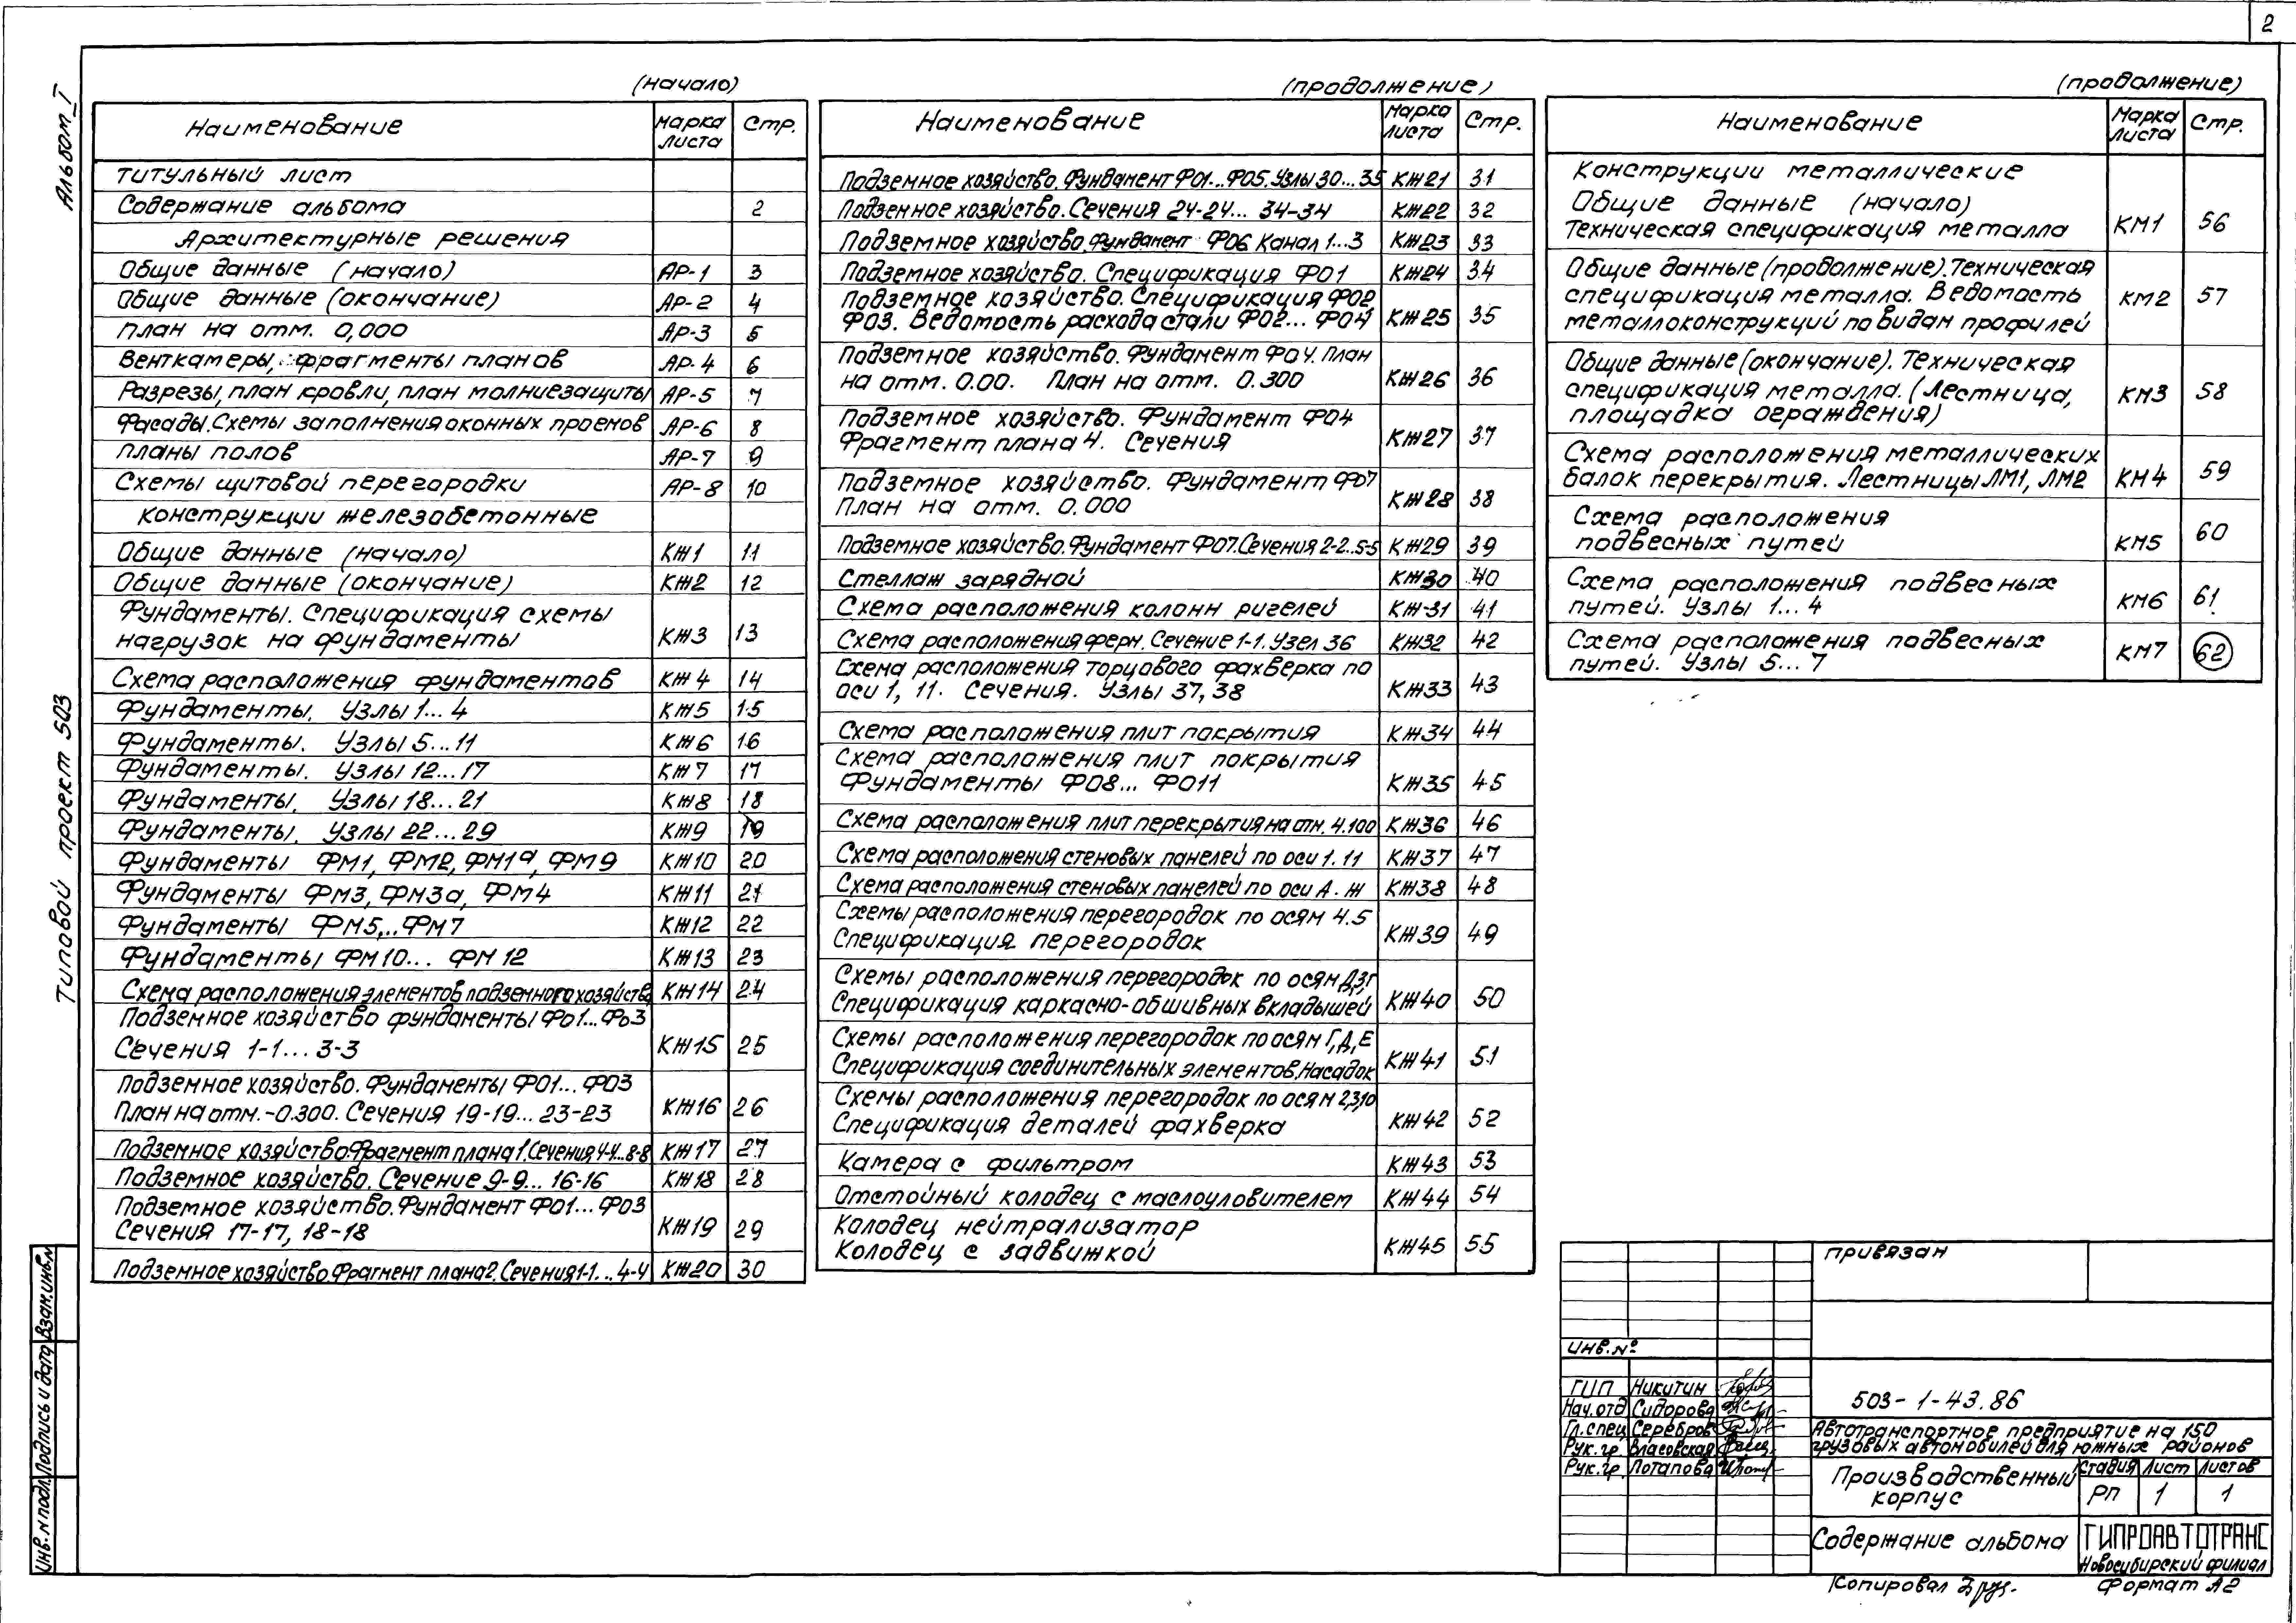 2
Альбом I
Типовой проект 503
(начало)
Наименование Марка листа Стр.
Титульный лист
Содержание альбома 2
Архитектурные решения
Общие данные (начало) АР-1 3
Общие данные (окончание) АР-2 4
План на отм. 0,000 АР-3 5
Венткамеры, фрагменты планов АР-4 6
Разрезы, план кровли, план молниезащиты АР-5 7
Фасады. Схемы заполнения оконных проемов АР-6 8
Планы полов АР-7 9
Схемы щитовой перегородки АР-8 10
Конструкции железобетонные
Общие данные (начало) КЖ1 11
Общие данные (окончание) КЖ2 12
Фундаменты. Спецификация схемы
нагрузок на фундаменты КЖ3 13
Схема расположения фундаментов КЖ4 14
Фундаменты. Узлы 1...4 КЖ5 15
Фундаменты. Узлы 5...11 КЖ6 16
Фундаменты. Узлы 12...17 КЖ7 17
Фундаменты. Узлы 18...21 КЖ8 18
Фундаменты. Узлы 22...29 КЖ9 19
Фундаменты ФМ1, ФМ2, ФМ1а, ФМ9 КЖ10 20
Фундаменты ФМ3, ФМ3а, ФМ4 КЖ11 21
Фундаменты ФМ5...ФМ7 КЖ12 22
Фундаменты ФМ10... ФМ12 КЖ13 23
Схема расположения элементов подземного хозяйства КЖ14 24
Подземное хозяйство фундаменты Ф01...Ф03
Сечения 1-1...3-3 КЖ15 25
Подземное хозяйство. Фундаменты Ф01...Ф03
План на отм.-0.300. Сечения 19-19...23-23 КЖ16 26
Подземное хозяйство Фрагмент плана 1. Сечения 4-4...8-8 КЖ17 27
Подземное хозяйство. Сечение 9-9...16-16 КЖ18 28
Подземное хозяйство. Фундамент Ф01...Ф03
Сечения 17-17, 18-18 КЖ19 29
Подземное хозяйство Фрагмент плана 2. Сечения 1-1...4-4 КЖ20 30
(продолжение)
Наименование Марка листа Стр.
Подземное хозяйство. Фундамент Ф01...Ф05. Узлы 30...35 КЖ21 31
Подземное хозяйство. Сечения 24-24... 34-34 КЖ22 32
Подземное хозяйство. Фундамент Ф06 Канал 1...3 КЖ23 33
Подземное хозяйство. Спецификация Ф01 КЖ24 34
Подземное хозяйство. Спецификация Ф02
Ф03. Ведомость расхода стали Ф02... Ф04 КЖ25 35
Подземное хозяйство. Фундамент Ф04. План
на отм. 0.00. План на отм. 0.300 КЖ26 36
Подземное хозяйство. Фундамент Ф04
Фрагмент плана 4. Сечения КЖ27 37
Подземное хозяйство. Фундамент Ф07
План на отм. 0.000 КЖ28 38
Подземное хозяйство. Фундамент Ф07. Сечения 2-2..5-5 КЖ29 39
Стеллаж зарядной КЖ30 40
Схема расположения колонн ригелей КЖ31 41
Схема расположения ферм. Сечение 1-1. Узел 36 КЖ32 42
Схема расположения торцового фахверка по
оси 1, 11. Сечения. Узлы 37, 38 КЖ33 43
Схема расположения плит покрытия КЖ34 44
Схема расположения плит покрытия
Фундаменты Ф08... Ф011 КЖ35 45
Схема расположения плит перекрытия на отм. 4.100 КЖ36 46
Схема расположения стеновых панелей по оси 1. 11 КЖ37 47
Схема расположения стеновых панелей по оси А. Ж КЖ38 48
Схемы расположения перегородок по осям 4.5
Спецификация перегородок КЖ39 49
Схемы расположения перегородок по осям
Спецификация каркасно-обшивных вкладышей КЖ40 50
Схемы расположения перегородок по осям Г,Д,Е
Спецификация соединительных элементов. Насадок КЖ41 51
Схемы расположения перегородок по осям 2,3,10
Спецификация деталей фахверка КЖ42 52
Камера с фильтром КЖ43 53
Отстойный колодец с маслоуловителем КЖ44 54
Колодец нейтрализатор
Колодец с задвижкой КЖ45 55
(продолжение)
Наименование Марка листа Стр.
Конструкции металлические
Общие данные (начало)
Техническая спецификация металла КМ1 56
Общие данные (продолжение). Техническая
спецификация металла. Ведомость
металлоконструкций по видам профилей КМ2 57
Общие данные (окончание). Техническая
спецификация металла. (Лестница,
площадка ограждения) КМ3 58
Схема расположения металлических
балок перекрытия. Лестницы ЛМ1, ЛМ2 КМ4 59
Схема расположения
подвесных путей КМ5 60
Схема расположения подвесных
путей. Узлы 1...4 КМ6 61
Схема расположения подвесных
путей. Узлы 5...7 КМ7 62
Привязан
Инв.№
ГИП Никитин
Нач.отд Сидорова
Гл.спец Серебров
Рук.гр. Власовская
Рук.гр. Потапова
503-1-43.86
Автотранспортное предприятие на 150
грузовых автомобилей для южных районов
Производственный
корпус
Стадия Лист Листов
РП 1 1
Содержание альбома
ГИПРОАВТОТРАНС
Новосибирский филиал
Копировал
Формат А2
Инв.№ подл. Подпись и дата Взам.инв.№